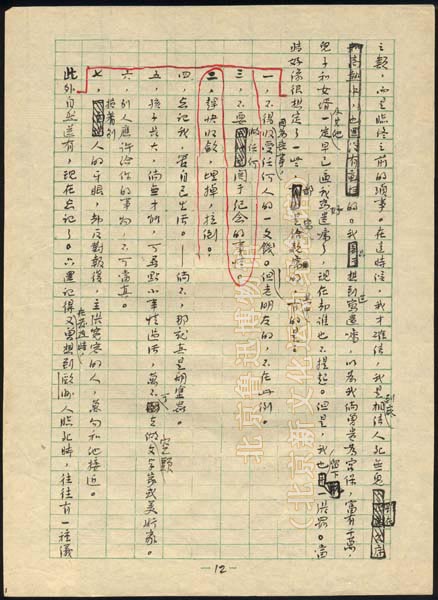 之類，而是臨終之前的瑣事。在這時候，我才確信，我是到底相信人死無鬼
的。我只想到過寫遺囑，以為我倘曾貴為宮保，富有千萬，
兒子和女婿及其他一定早已逼我寫好遺囑了，現在却誰也不提起。但是，我也留下一張罷。當
時好像很想定了一些，都是寫給親屬的，其中有的是：
一，不得因為喪事，收受任何人的一文錢。但老朋友的，不在此例。
三，不要做任何關于紀念的事情。
二，趕快收斂，埋掉，拉倒。
四，忘記我，管自己生活。——倘不，那就真是胡塗蟲。
五，孩子長大，倘無才能，可尋點小事情過活，萬不可去做空頭文學家或美術家。
六，別人應許給你的事物，不可當真。
七，損着別人的牙眼，却反對報復，主張寬容的人，萬勿和他接近。
此外自然還有，現在忘記了。只還記得在發熱時，又曾想到歐洲人臨死時，往往有一種儀
-12-
北京鲁迅博物馆
（北京新文化运动纪念馆）